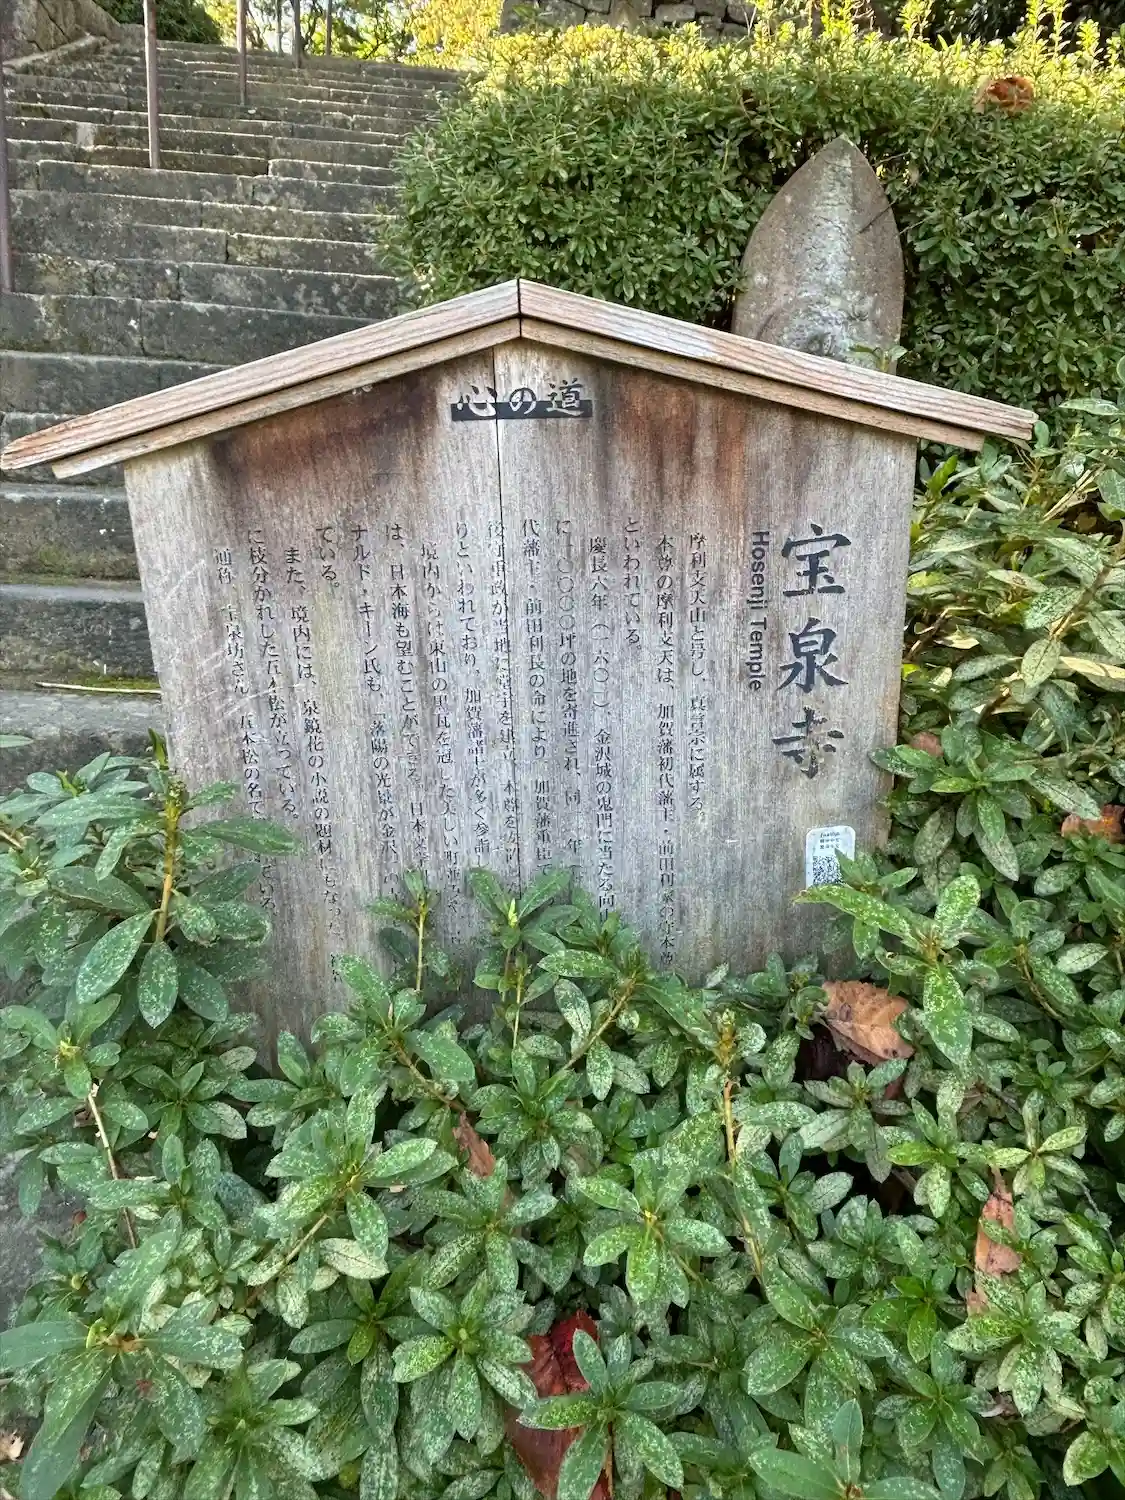 心の道
宝泉寺
Hosenji Temple
摩利支天山と号し、真言宗に属する。
本尊の摩利支天は、加賀藩初代藩主・前田利家の守本尊
といわれている。
慶長六年(一六〇一)、金沢城の鬼門に当たる向山
に一〇〇〇〇坪の地を寄進され、同 年
代藩主・前田利長の命により、加賀藩重臣
が当地に堂宇を建立、本尊を安置した
りといわれており、加賀藩諸士が多く参詣し
境内からは東山の黒瓦を冠した美しい町並み
は、日本海も望むことができる。日本文学
ナルド・キーン氏も、「落陽の光景が金沢
ている。
また、境内には、泉鏡花の小説の題材にもなった、
に枝分かれした五本松が立っている。
通称、宝泉坊さん、五本松の名で いる。